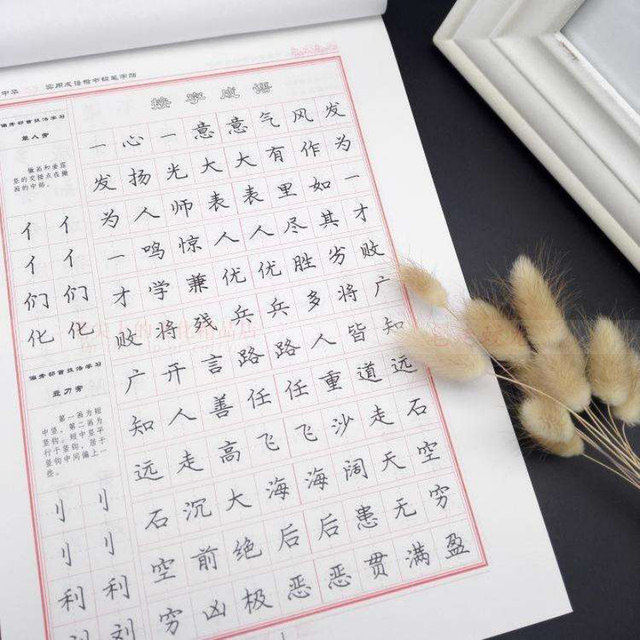 中华 实用成语楷书硬笔字帖
接字成语
偏旁部首技法学习
单人旁
竖的交接点在撇
画的中部。
亻亻
亻亻
们们
化化
偏旁部首技法学习
立刀旁
第一画为短
中竖，第二画为
竖钩。短中竖平
行于竖钩，居于
竖钩中间偏上一
些。
刂刂
刂刂
利利
刘刘
一心一意意气风发
发扬光大大有作为
为人师表表里如一
一鸣惊人人尽其才
才学兼优优胜劣败
败将残兵兵多将广
广开言路路人皆知
知人善任任重道远
远走高飞飞沙走石
石沉大海海阔天空
空前绝后后患无穷
穷凶极恶恶贯满盈
1